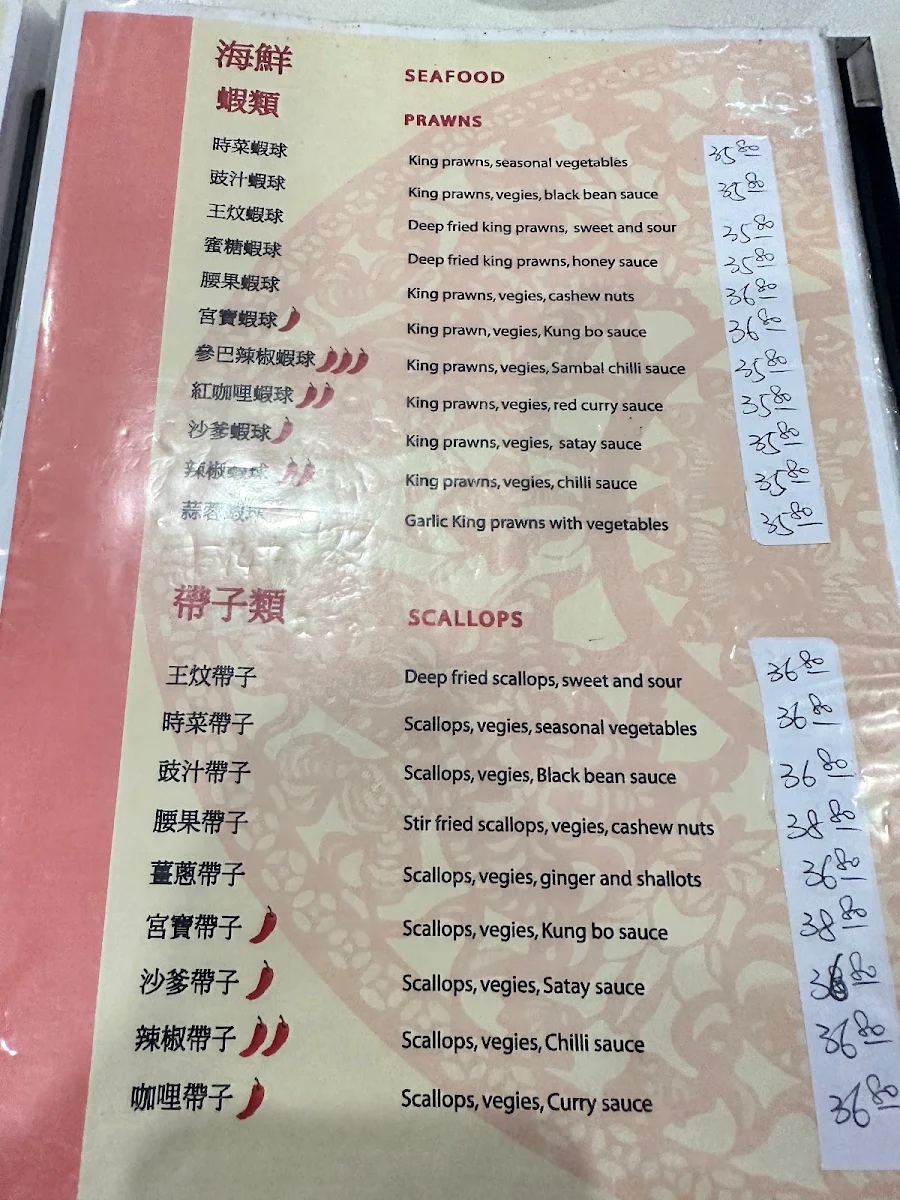 海鮮 SEAFOOD
蝦類 PRAWNS
時菜蝦球 King prawns, seasonal vegetables 35.80
豉汁蝦球 King prawns, vegies, black bean sauce 35.80
王炆蝦球 Deep fried king prawns, sweet and sour 35.80
蜜糖蝦球 Deep fried king prawns, honey sauce 35.80
腰果蝦球 King prawns, vegies, cashew nuts 36.80
宮寶蝦球 King prawn, vegies, Kung bo sauce 36.80
參巴辣椒蝦球 King prawns, vegies, Sambal chilli sauce 35.80
紅咖哩蝦球 King prawns, vegies, red curry sauce 35.80
沙爹蝦球 King prawns, vegies, satay sauce 35.80
辣椒蝦球 King prawns, vegies, chilli sauce 35.80
蒜蓉蝦球 Garlic King prawns with vegetables 35.80
帶子類 SCALLOPS
王炆帶子 Deep fried scallops, sweet and sour 36.80
時菜帶子 Scallops, vegies, seasonal vegetables 36.80
豉汁帶子 Scallops, vegies, Black bean sauce 36.80
腰果帶子 Stir fried scallops, vegies, cashew nuts 38.80
薑蔥帶子 Scallops, vegies, ginger and shallots 36.80
宮寶帶子 Scallops, vegies, Kung bo sauce 38.80
沙爹帶子 Scallops, vegies, Satay sauce 36.80
辣椒帶子 Scallops, vegies, Chilli sauce 36.80
咖哩帶子 Scallops, vegies, Curry sauce 36.80